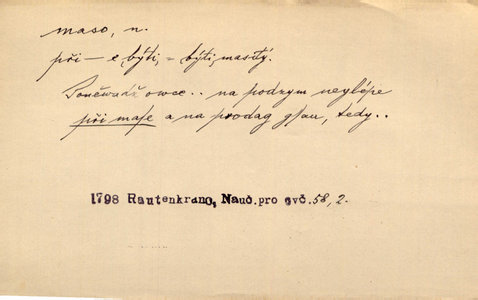 maso, n.
při – e býti, = býti masitý.
Poněwadž owce .. na podzym neylépe
při mase a na prodag gsau, tedy..
1798 Rautenkranc, Nauč.pro ovč. 58, 2.